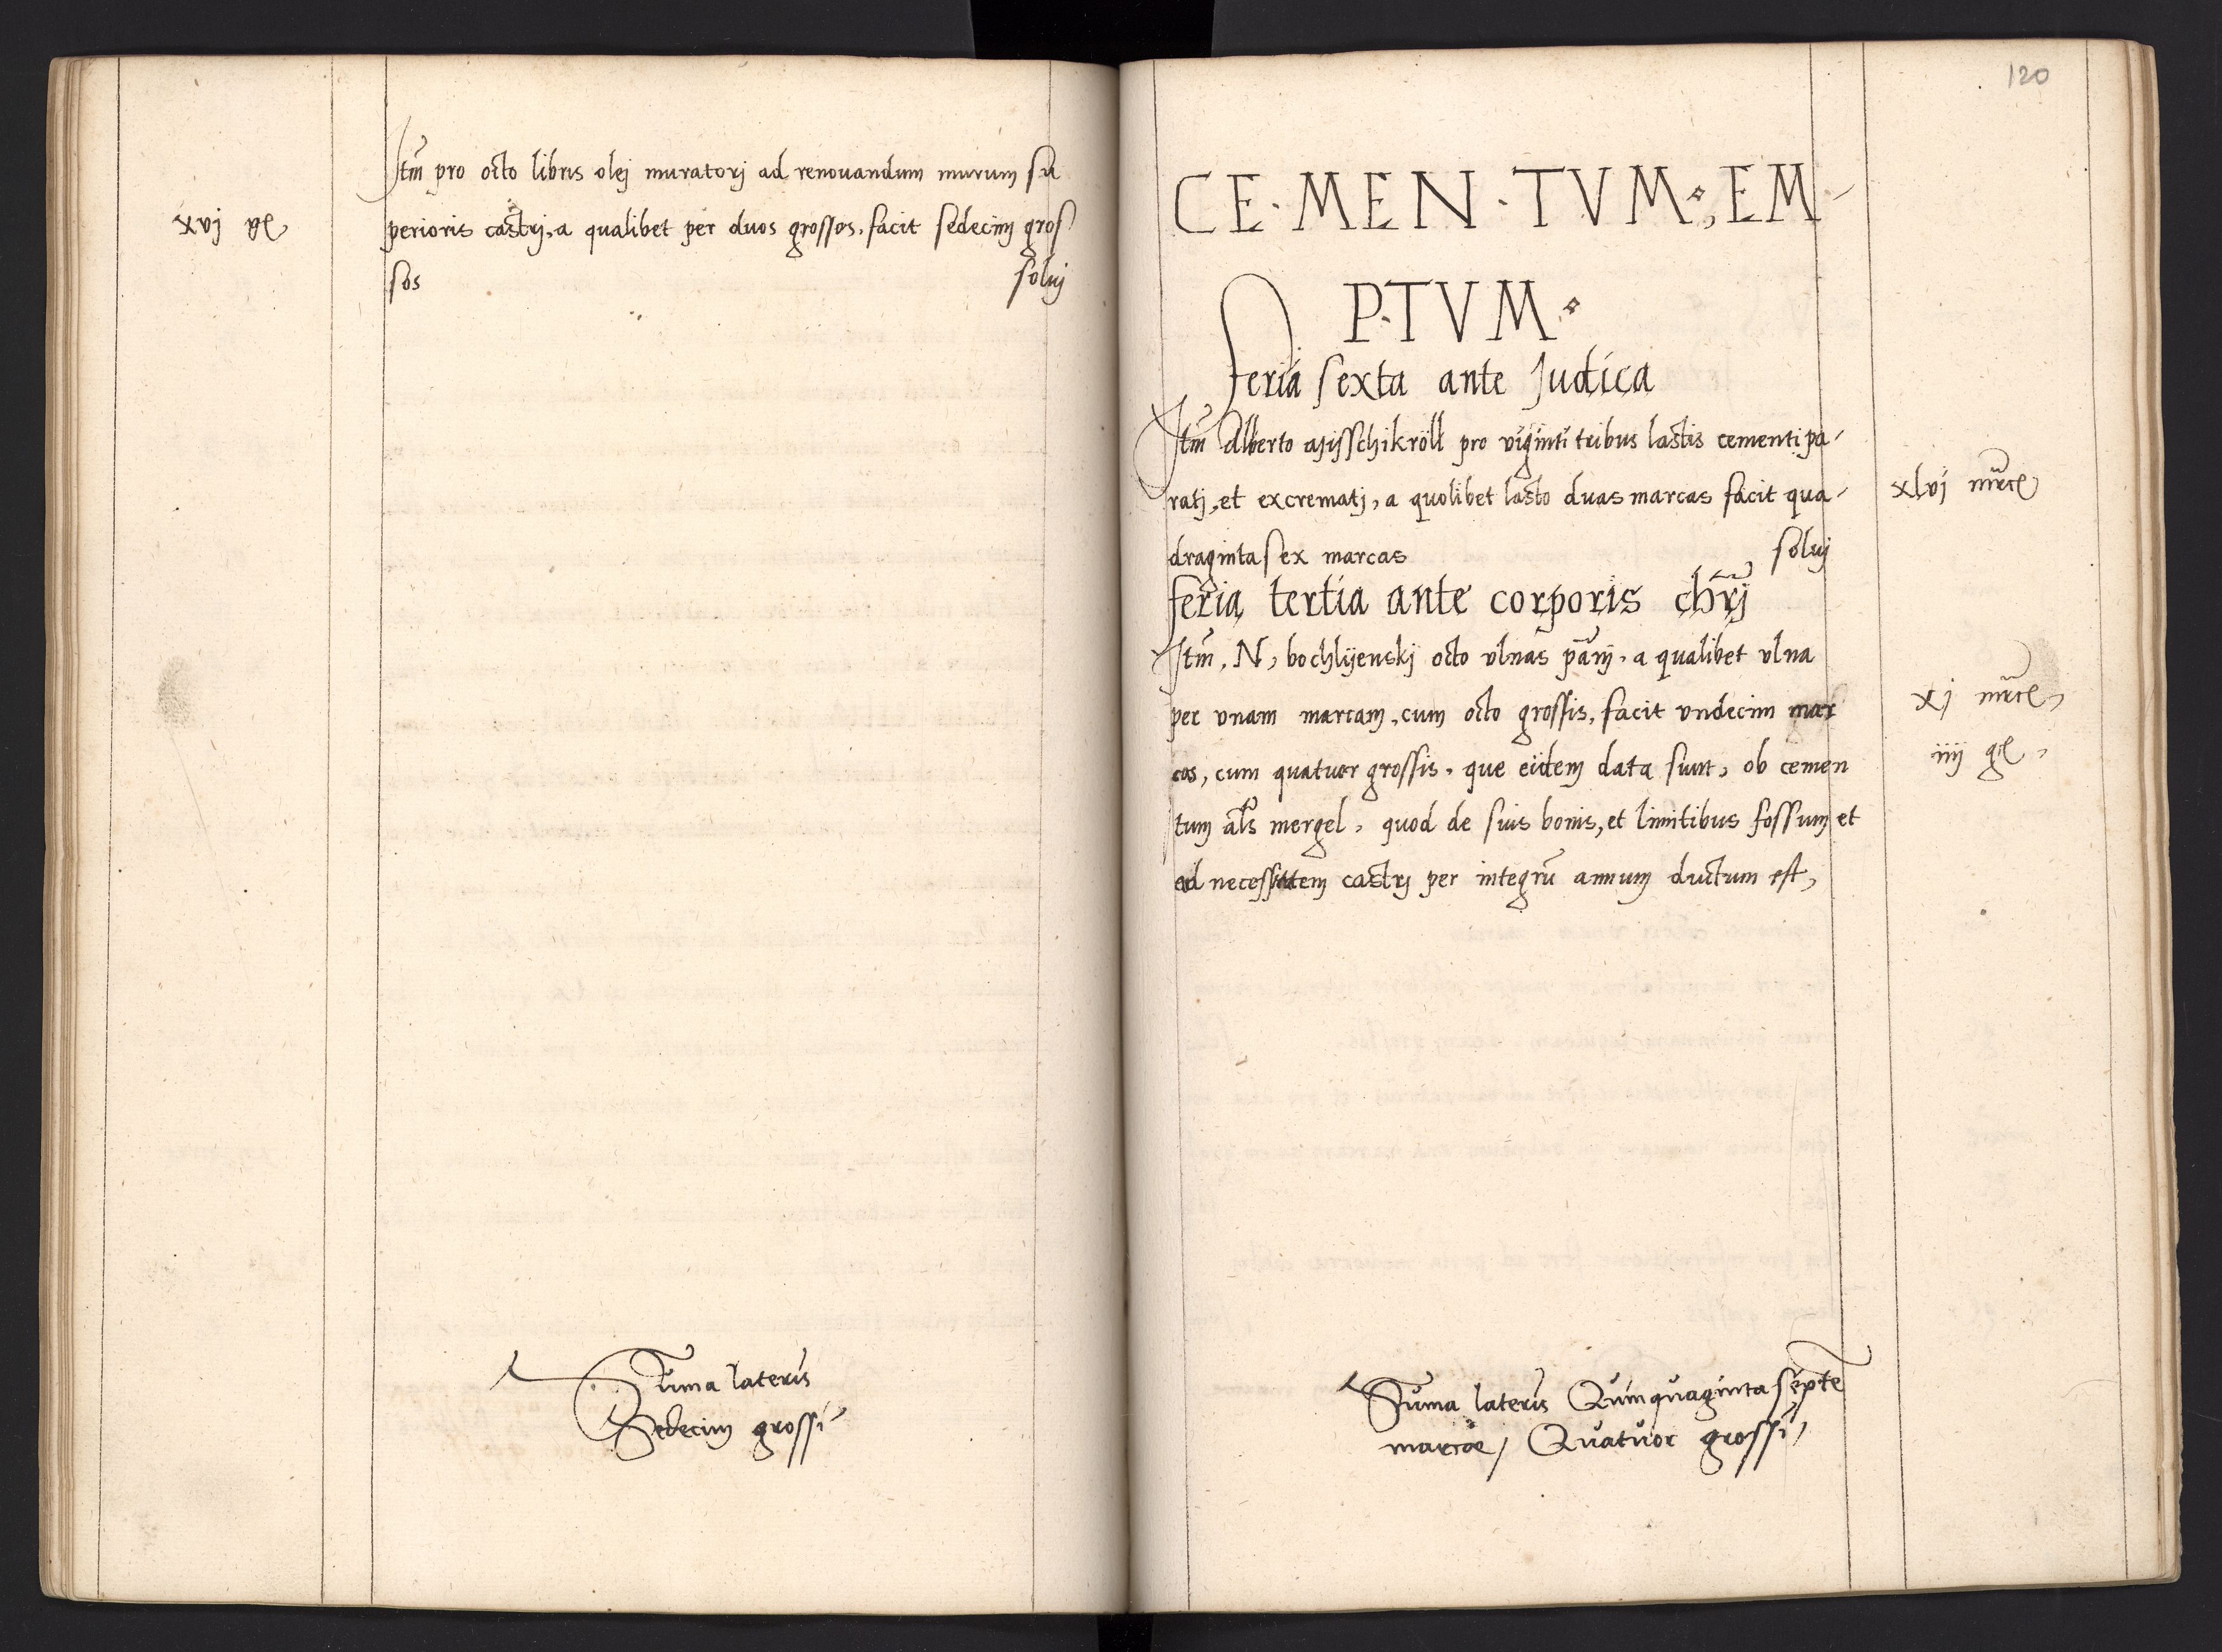 Itm pro octo libris olej muratorj ad renouandum murum su
xvj gͬ
perioris castrj, a qualibet per duos grossos, facit sedecim gros
sos soluj
Suma lateris
Sedecim grossi
120
CE·MEN·TVM, EM-
P·TVM
feria sexta ante Judica
Itm Alberto pro viginti tribus lastis cementi pa-
ratj, et excrematj, a quolibet lasto duas marcas facit qua-
xlvj mrce
draginta sex marcas soluj
feria tertia ante corporis chrj
Itm, N, bochlijenskj octo vlnas panj, a qualibet vlna
per vnam marcam, cum octo grossis, facit vndecim mar
xj mrce,
cas, cum quatuor grossis, que eidem data sunt, ob cemen
iiij gͬ,
tum als mergel, quod de suis bonis, et limitibus fossum et
ad necessitatem castrj per integru annum ductum est,
Suma lateris Quinquaginta septe
marcae, Quatuor grossi,